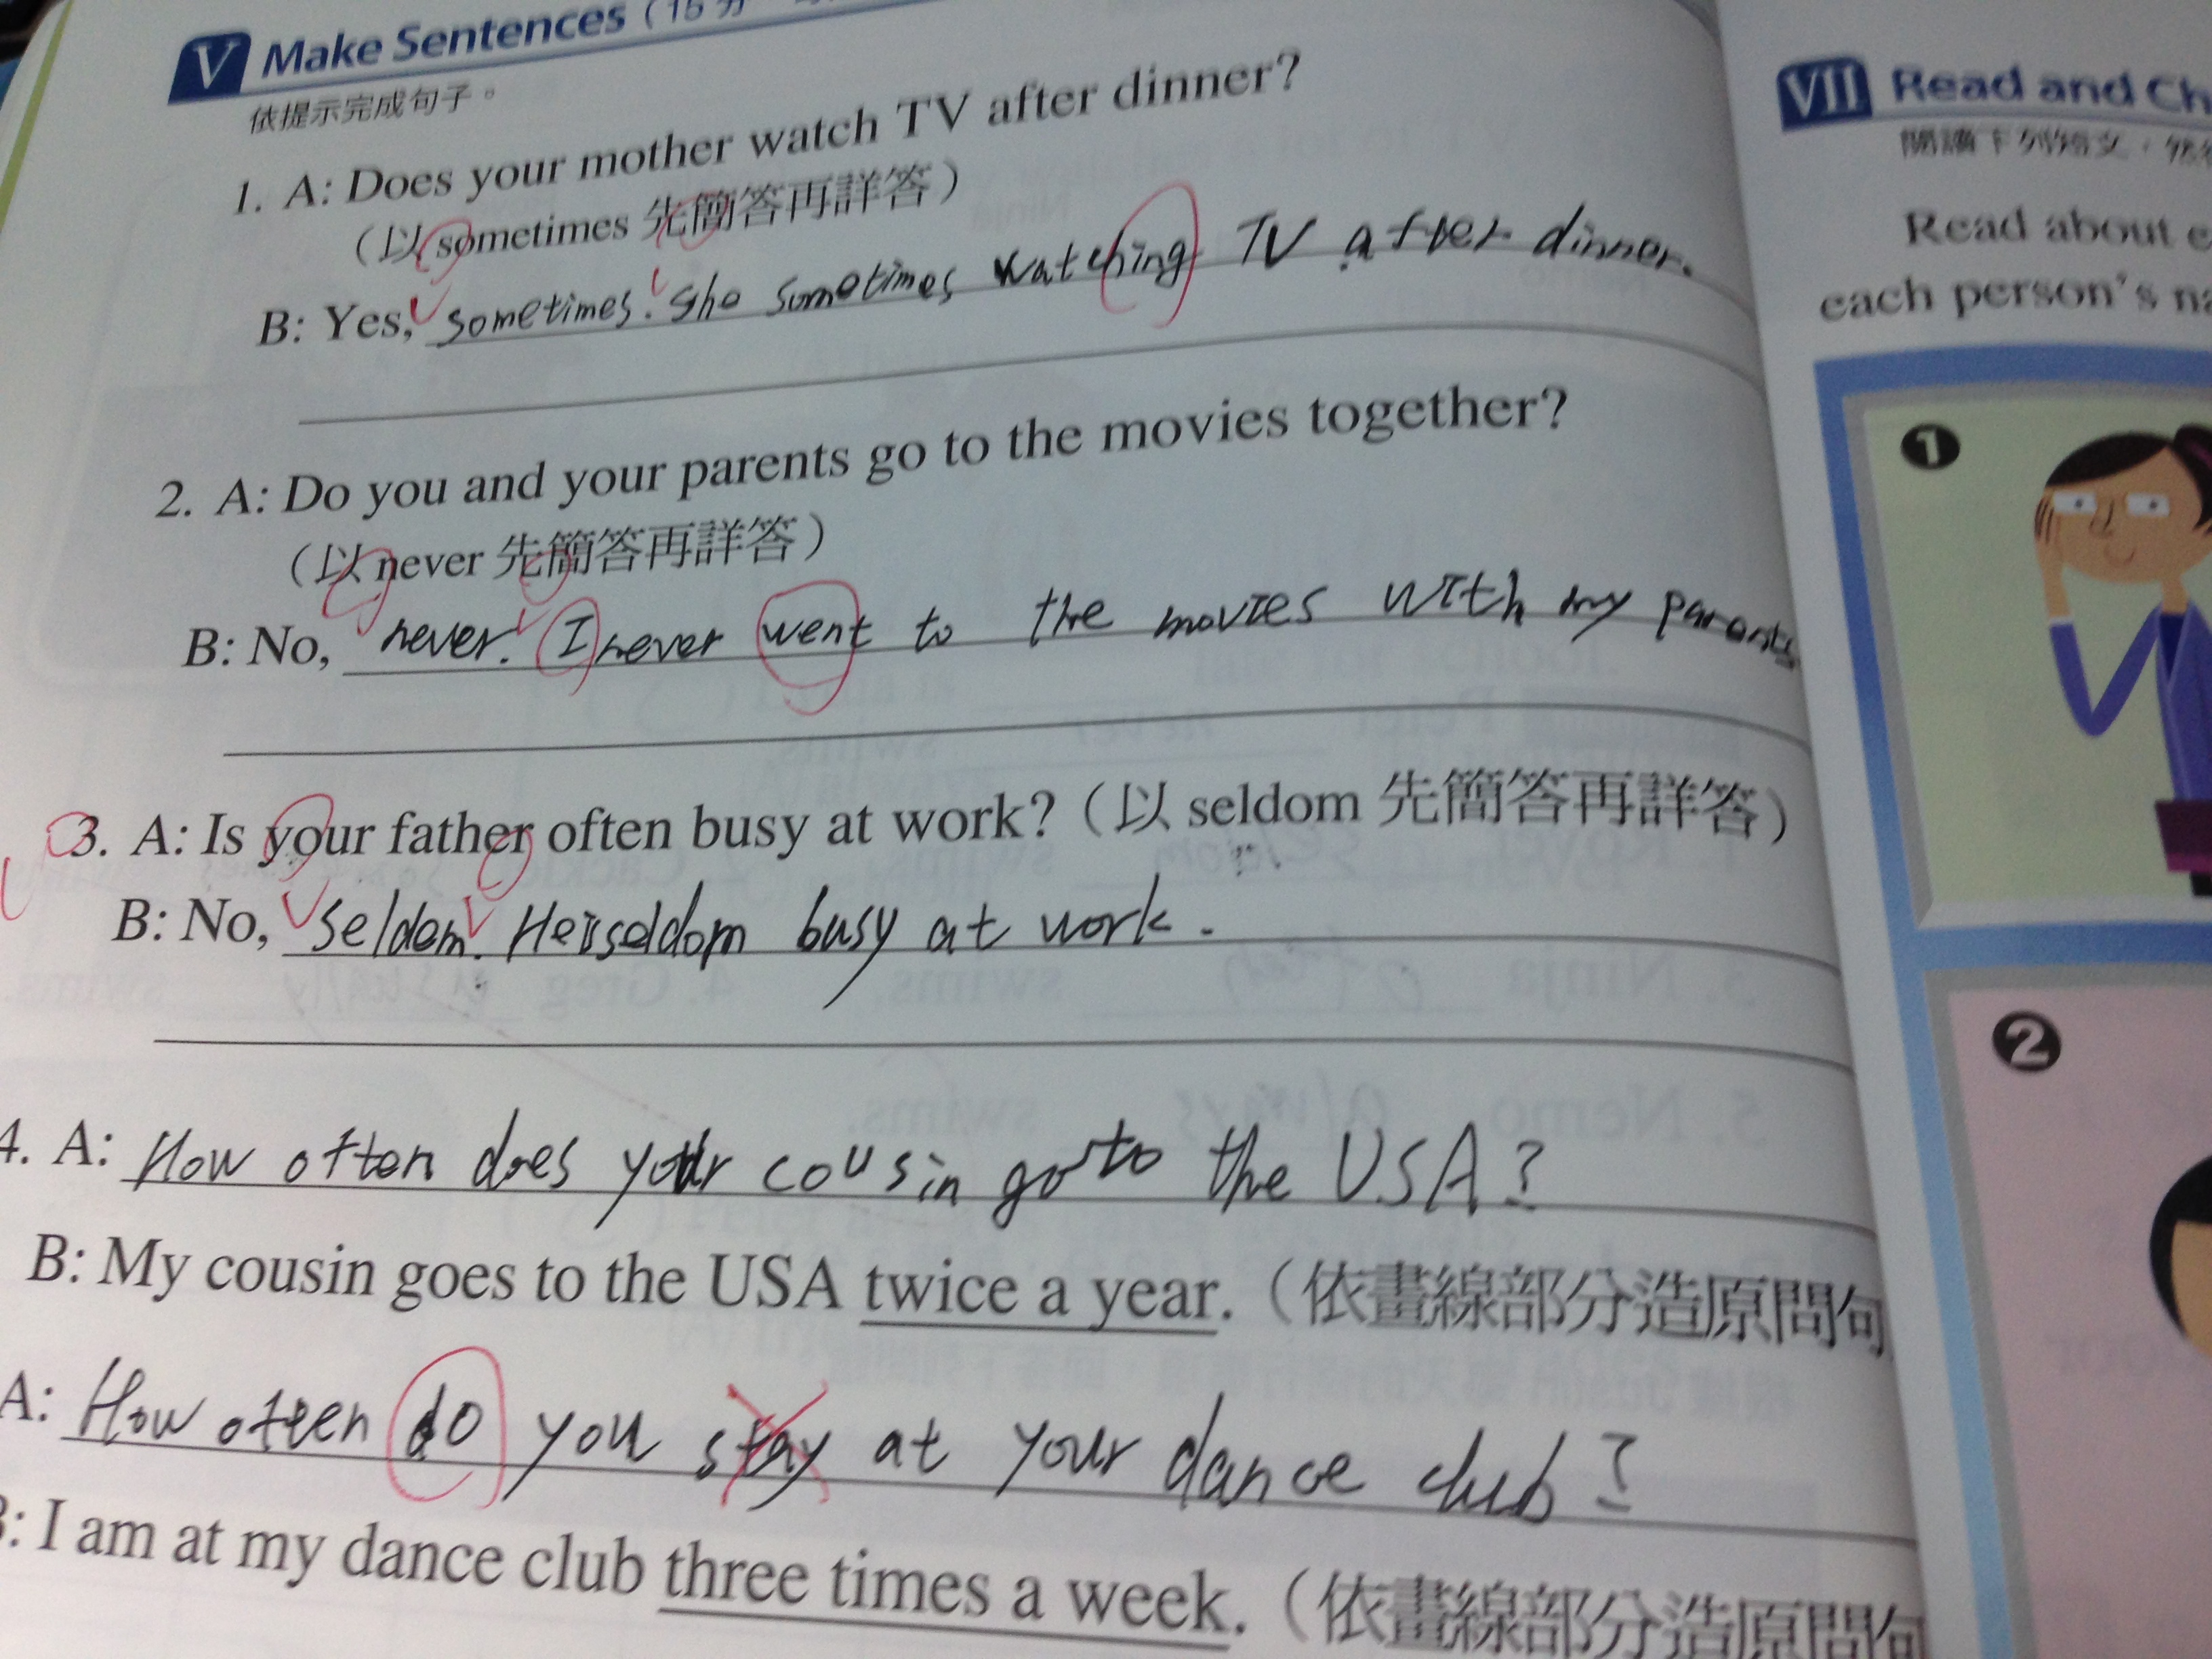 V Make Sentences (15分
依提示完成句子。
1. A: Does your mother watch TV after dinner?
(以 sometimes 先簡答再詳答)
B: Yes, sometimes. She sometimes watching TV after dinner.
2. A: Do you and your parents go to the movies together?
(以 never 先簡答再詳答)
B: No, never. I never went to the movies with my parents
3. A: Is your father often busy at work? (以 seldom 先簡答再詳答)
B: No, seldom. He is seldom busy at work.
4. A: How often does your cousin go to the USA?
B: My cousin goes to the USA twice a year. (依畫線部分造原問句
A: How often do you stay at your dance club?
B: I am at my dance club three times a week. (依畫線部分造原問句
VII Read and Ch
閱讀下列短文，
Read about e
each person's na
1
2